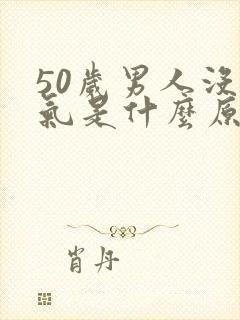 50歲男人沒
氣是什麼原
肖丹